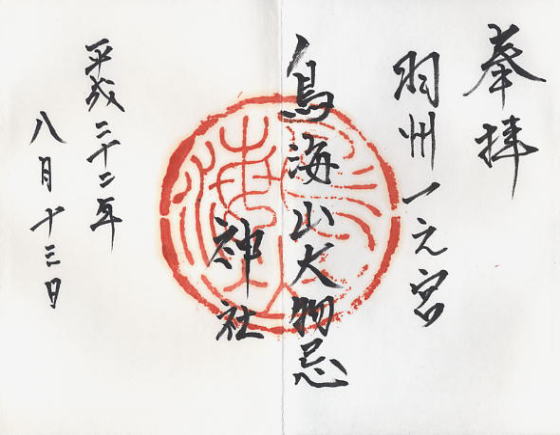 奉拝
羽州一之宮
鳥海山大物忌
神社
平成二十二年
八月十三日